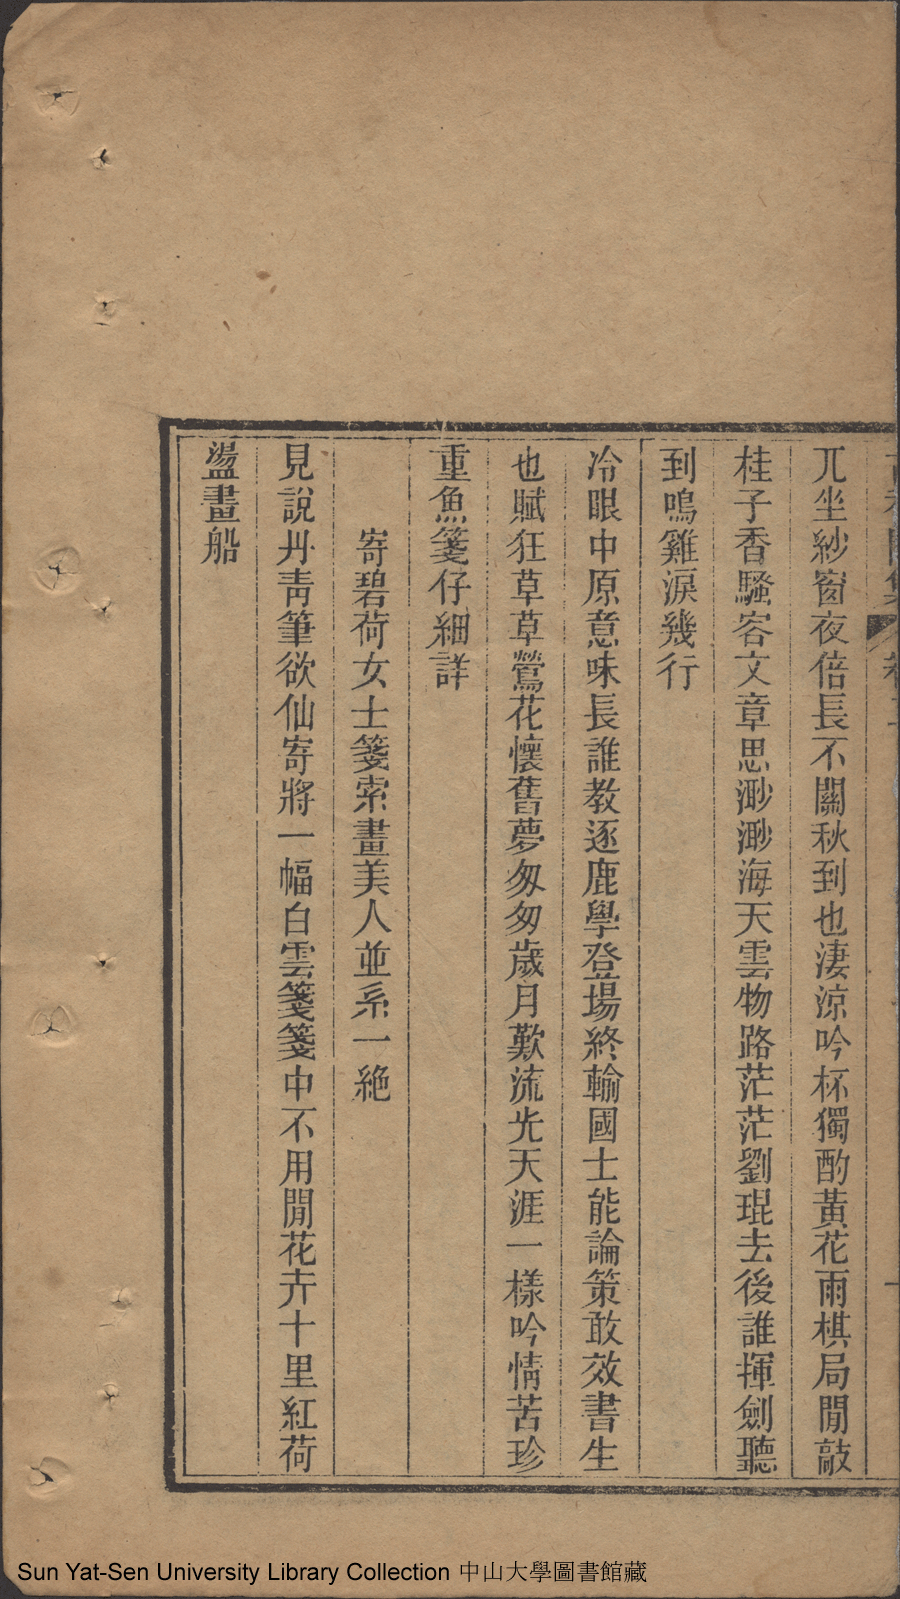 兀坐紗窗夜倍長不關秋到也淒涼吟杯獨酌黃花雨棋局閒敲
桂子香騷客文章思渺渺海天雲物路茫茫劉琨去後誰揮劍聽
到鳴雞淚幾行
冷眼中原意味長誰教逐鹿學登場終輸國士能論策敢效書生
也賦狂草草鶯花懷舊夢匆匆歲月歎流光天涯一樣吟情苦珍
重魚箋仔細詳
寄碧荷女士箋索畫美人並系一絶
見說丹靑筆欲仙寄將一幅白雲箋箋中不用閒花卉十里紅荷
盪畫船
Sun Yat-Sen University Library Collection 中山大學圖書館藏